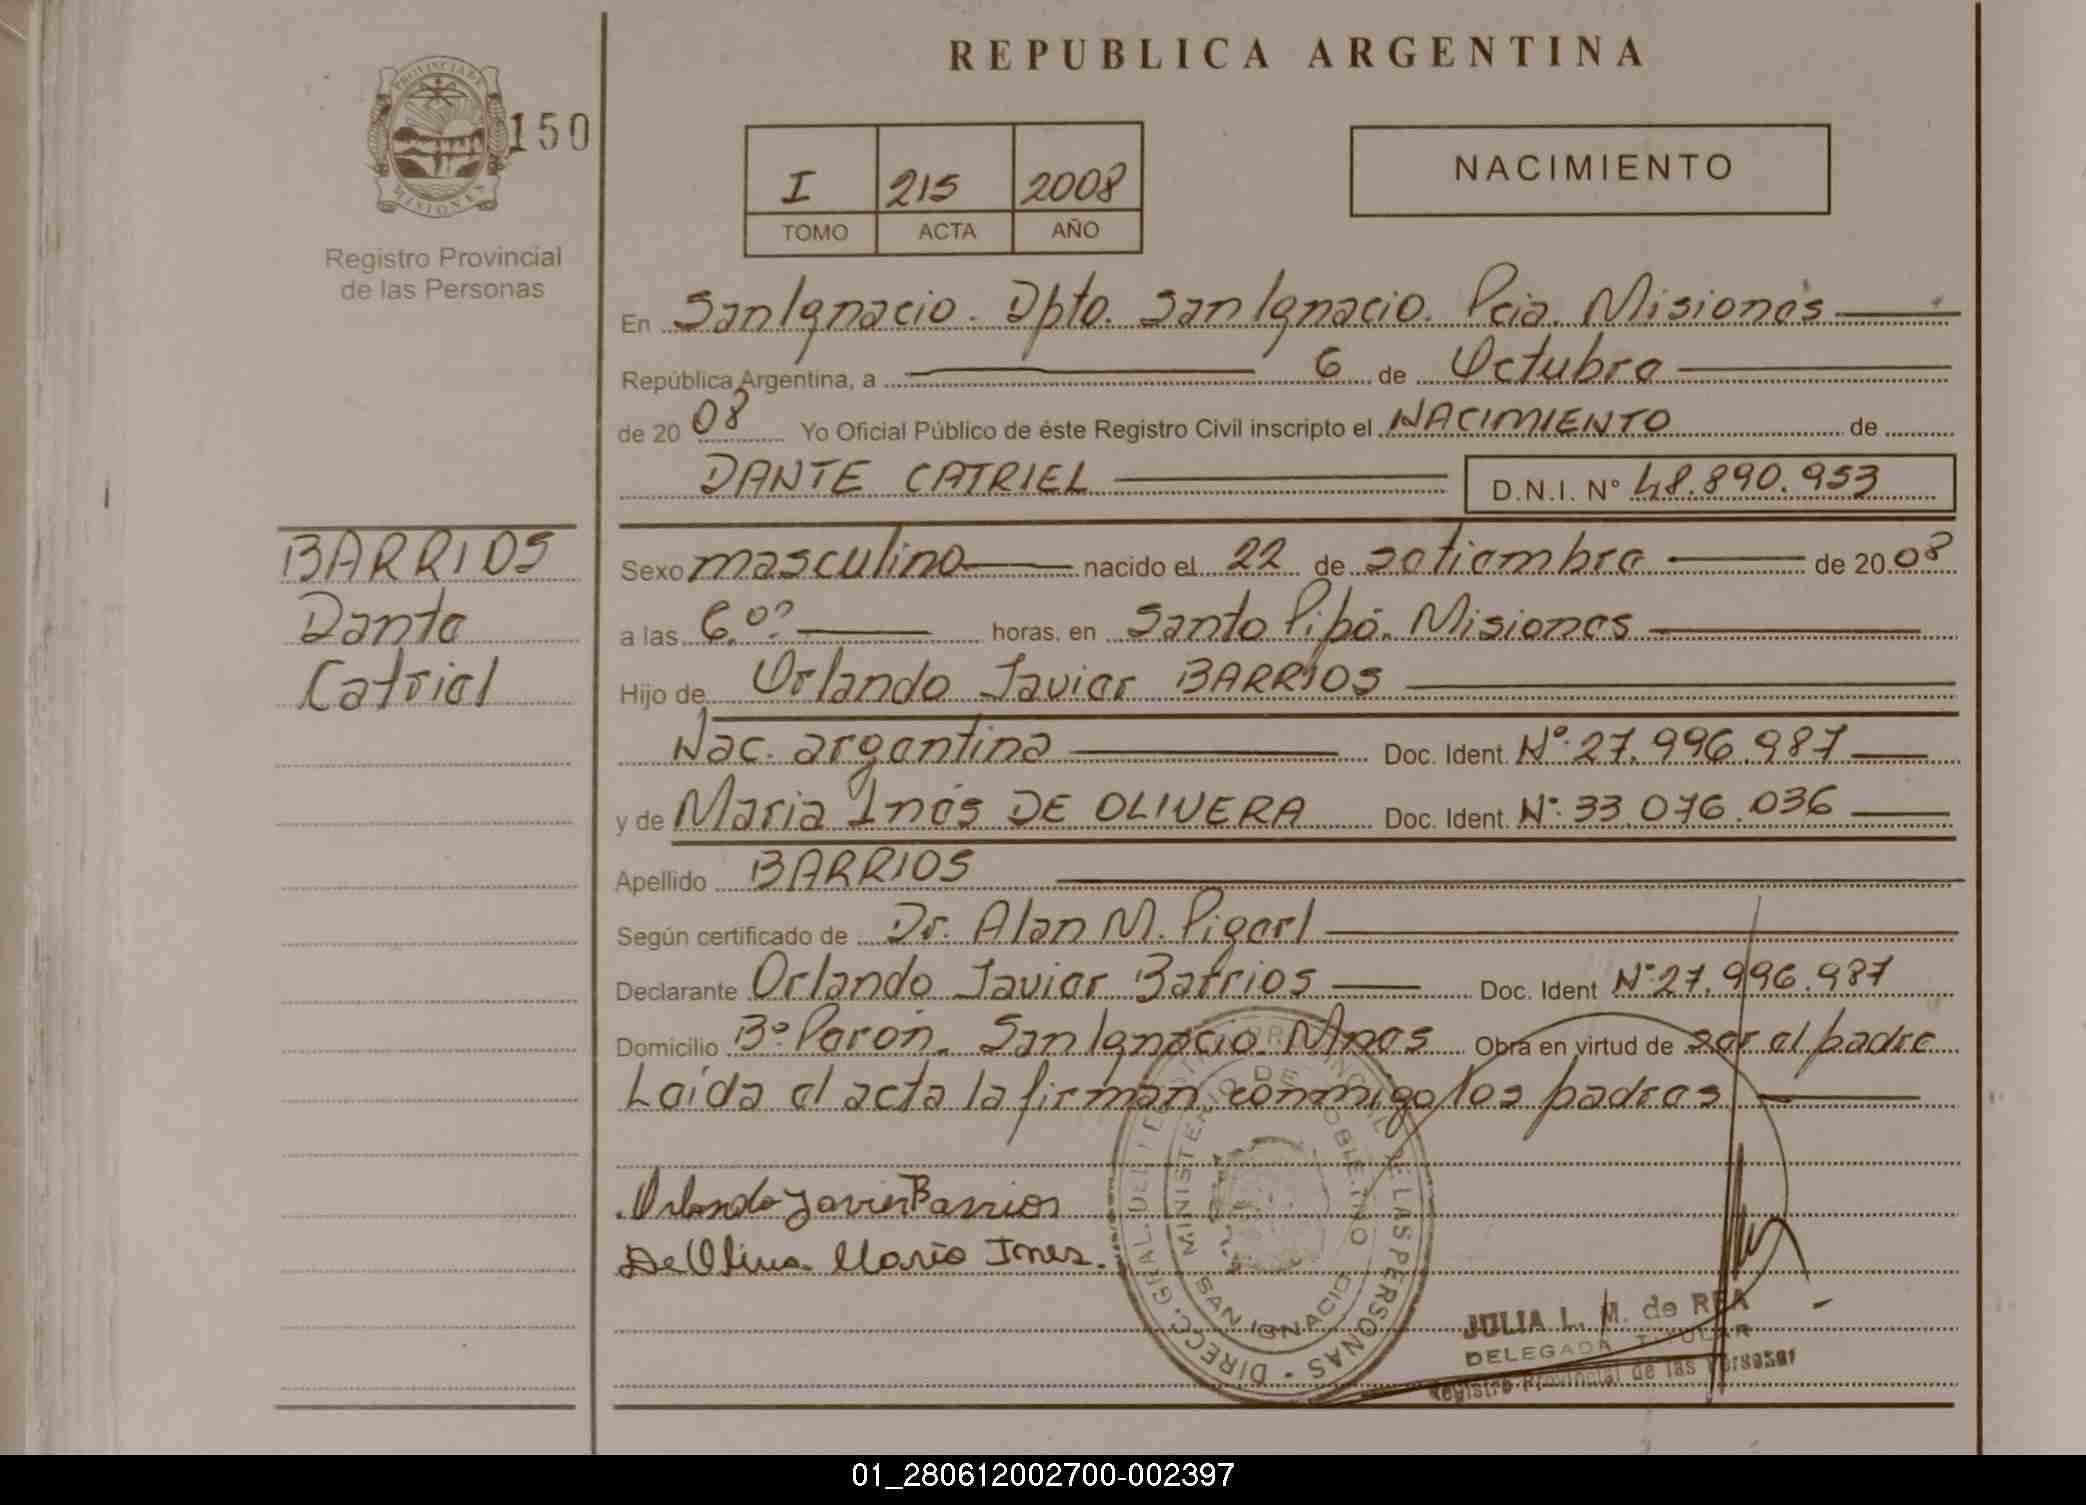 REPUBLICA ARGENTINA
PROVINCIA DE
MISIONES
150
Registro Provincial
de las Personas
I 215 2008
TOMO ACTA AÑO
NACIMIENTO
En San Ignacio. Dpto. San Ignacio. Pcia. Misiones
República Argentina, a 6 de Octubre
de 2008 Yo Oficial Público de éste Registro Civil inscripto el NACIMIENTO de
DANTE CATRIEL D.N.I. Nº 48.890.953
BARRIOS
Dante
Catriel
Sexo masculino nacido el 22 de setiembre de 2008
a las 6.00 horas, en Santo Pipó. Misiones
Hijo de Orlando Javier BARRIOS
Nac. argentina Doc. Ident. Nº 27.996.987
y de Maria Inés DE OLIVERA Doc. Ident. Nº 33.076.036
Apellido BARRIOS
Según certificado de Dr. Alan M. Pigerl
Declarante Orlando Javier Barrios Doc. Ident Nº 27.996.987
Domicilio Bº Perón. San Ignacio. Mnes Obra en virtud de ser el padre
Leída el acta la firman conmigo los padres
Orlando Javier Barrios
De Olivera Maria Ines.
DIRECC. GRAL. DEL REGISTRO PROVINCIAL DE LAS PERSONAS
MINISTERIO DE GOBIERNO
SAN IGNACIO
JULIA L. M. de REA
DELEGADA TITULAR
Registro Provincial de las Personas
01_280612002700-002397